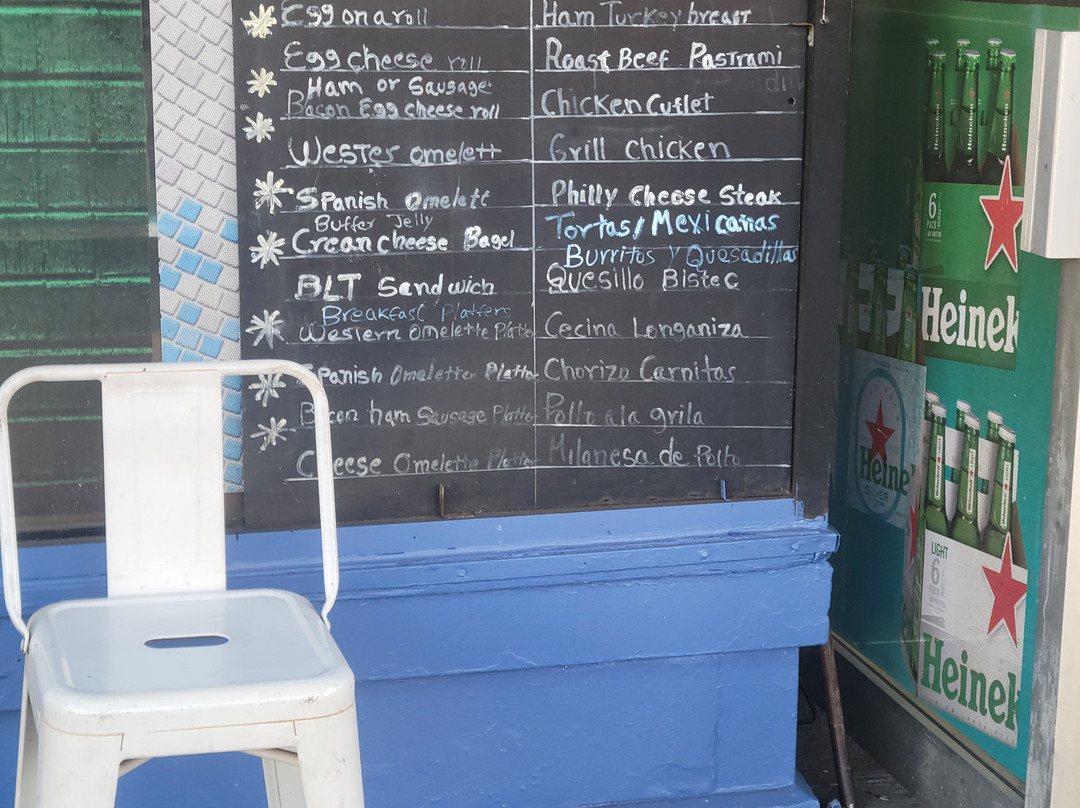 Egg on a roll
Egg cheese roll
Ham or Sausage
Bacon Egg cheese roll
Wester omelett
Spanish Omelett
Buffer Jelly
Crean cheese Bagel
BLT Sandwich
Breakfast Platters
Western Omelette Platter
Spanish Omelette Platter
Bacon ham Sausage Platter
Cheese Omelette Platter
Ham Turkey breast
Roast Beef Pastrami
Chicken Cutlet
Grill chicken
Philly Cheese Steak
Tortas/Mexicanas
Burritos y Quesadillas
Quesillo Bistec
Cecina Longaniza
Chorizo Carnitas
Pollo a la grila
Milanesa de Pollo
Heineken
Heineken
Heineken
6
PACK
Heinek
Heine
SILVER
LIGHT
6
PACK
Heinek